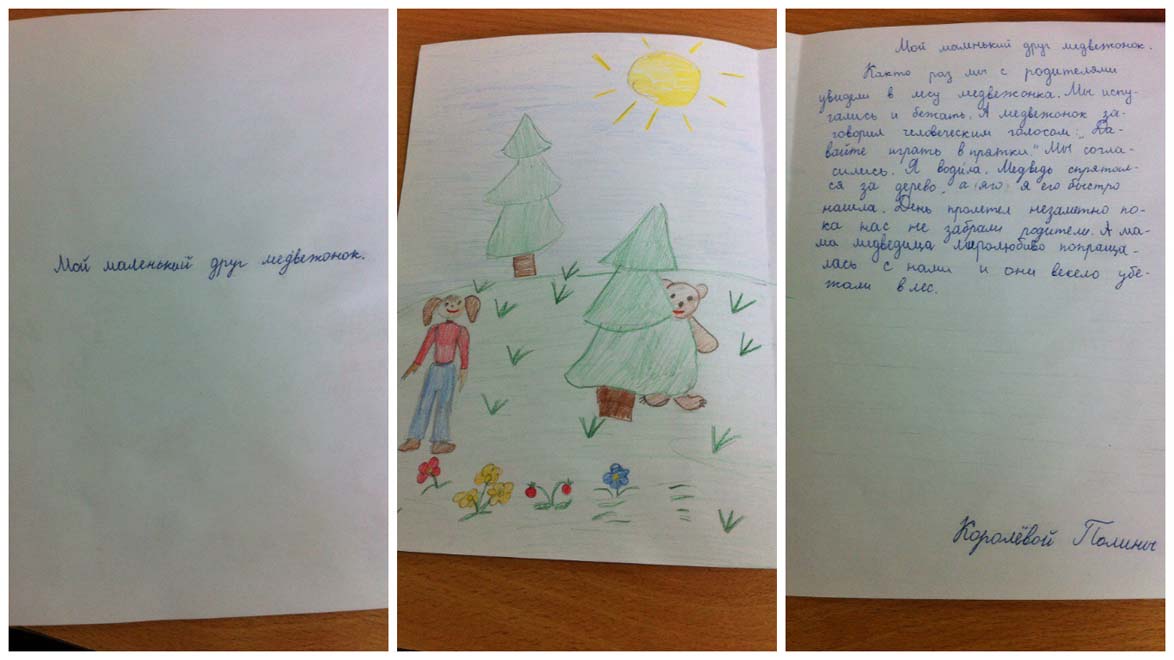 Мой маленький друг медвежонок.
Мой маленький друг медвежонок.
Както раз мы с родителями
увидели в лесу медвежонка. Мы испу-
гались и бежать. А медвежонок за-
говорил человеческим голосом: "Да-
вайте играть в прятки." Мы согла-
сились. Я водила. Медведь спрятал-
ся за дерево, а я его быстро
нашла. День пролетел незаметно по-
ка нас не забрали родители. А ма-
ма медведица миролюбиво попроща-
лась с нами и они весело убе-
жали в лес.
Королёвой Полины